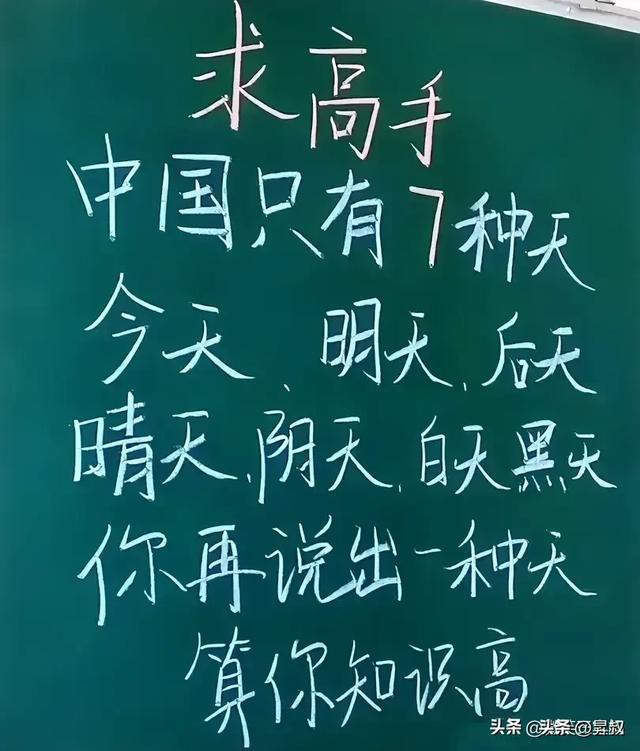 求高手
中国只有7种天
今天、明天、后天
晴天、阴天、白天黑天
你再说出一种天
算你知识高
头条 @头条 @昙叔